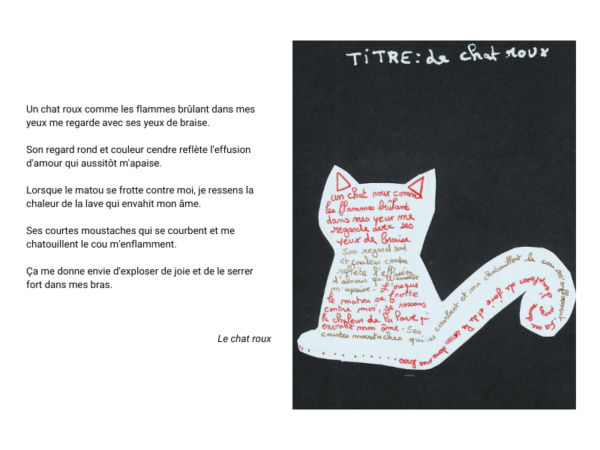 Un chat roux comme les flammes brûlant dans mes
yeux me regarde avec ses yeux de braise.
Son regard rond et couleur cendre reflète l'effusion
d'amour qui aussitôt m'apaise.
Lorsque le matou se frotte contre moi, je ressens la
chaleur de la lave qui envahit mon âme.
Ses courtes moustaches qui se courbent et me
chatouillent le cou m'enflamment.
Ça me donne envie d'exploser de joie et de le serrer
fort dans mes bras.
Le chat roux
TiTRE: de chat roux
un chat roux comme
les flammes brûlant
dans mes yeux me
regarde avec ses
yeux de braise
Son regard rond
et couleur cendre
reflète l'effusion
d'amour qui aussitôt
m'apaise. Lorsque
le matou se frotte
contre moi, je ressens
la chaleur de la lave qui
envahit mon âme. Ses
courtes moustaches qui se courbent et me chatouillent le cou m'enflamment.
Ça me donne envie d'exploser de joie et de le serrer dans mes bras